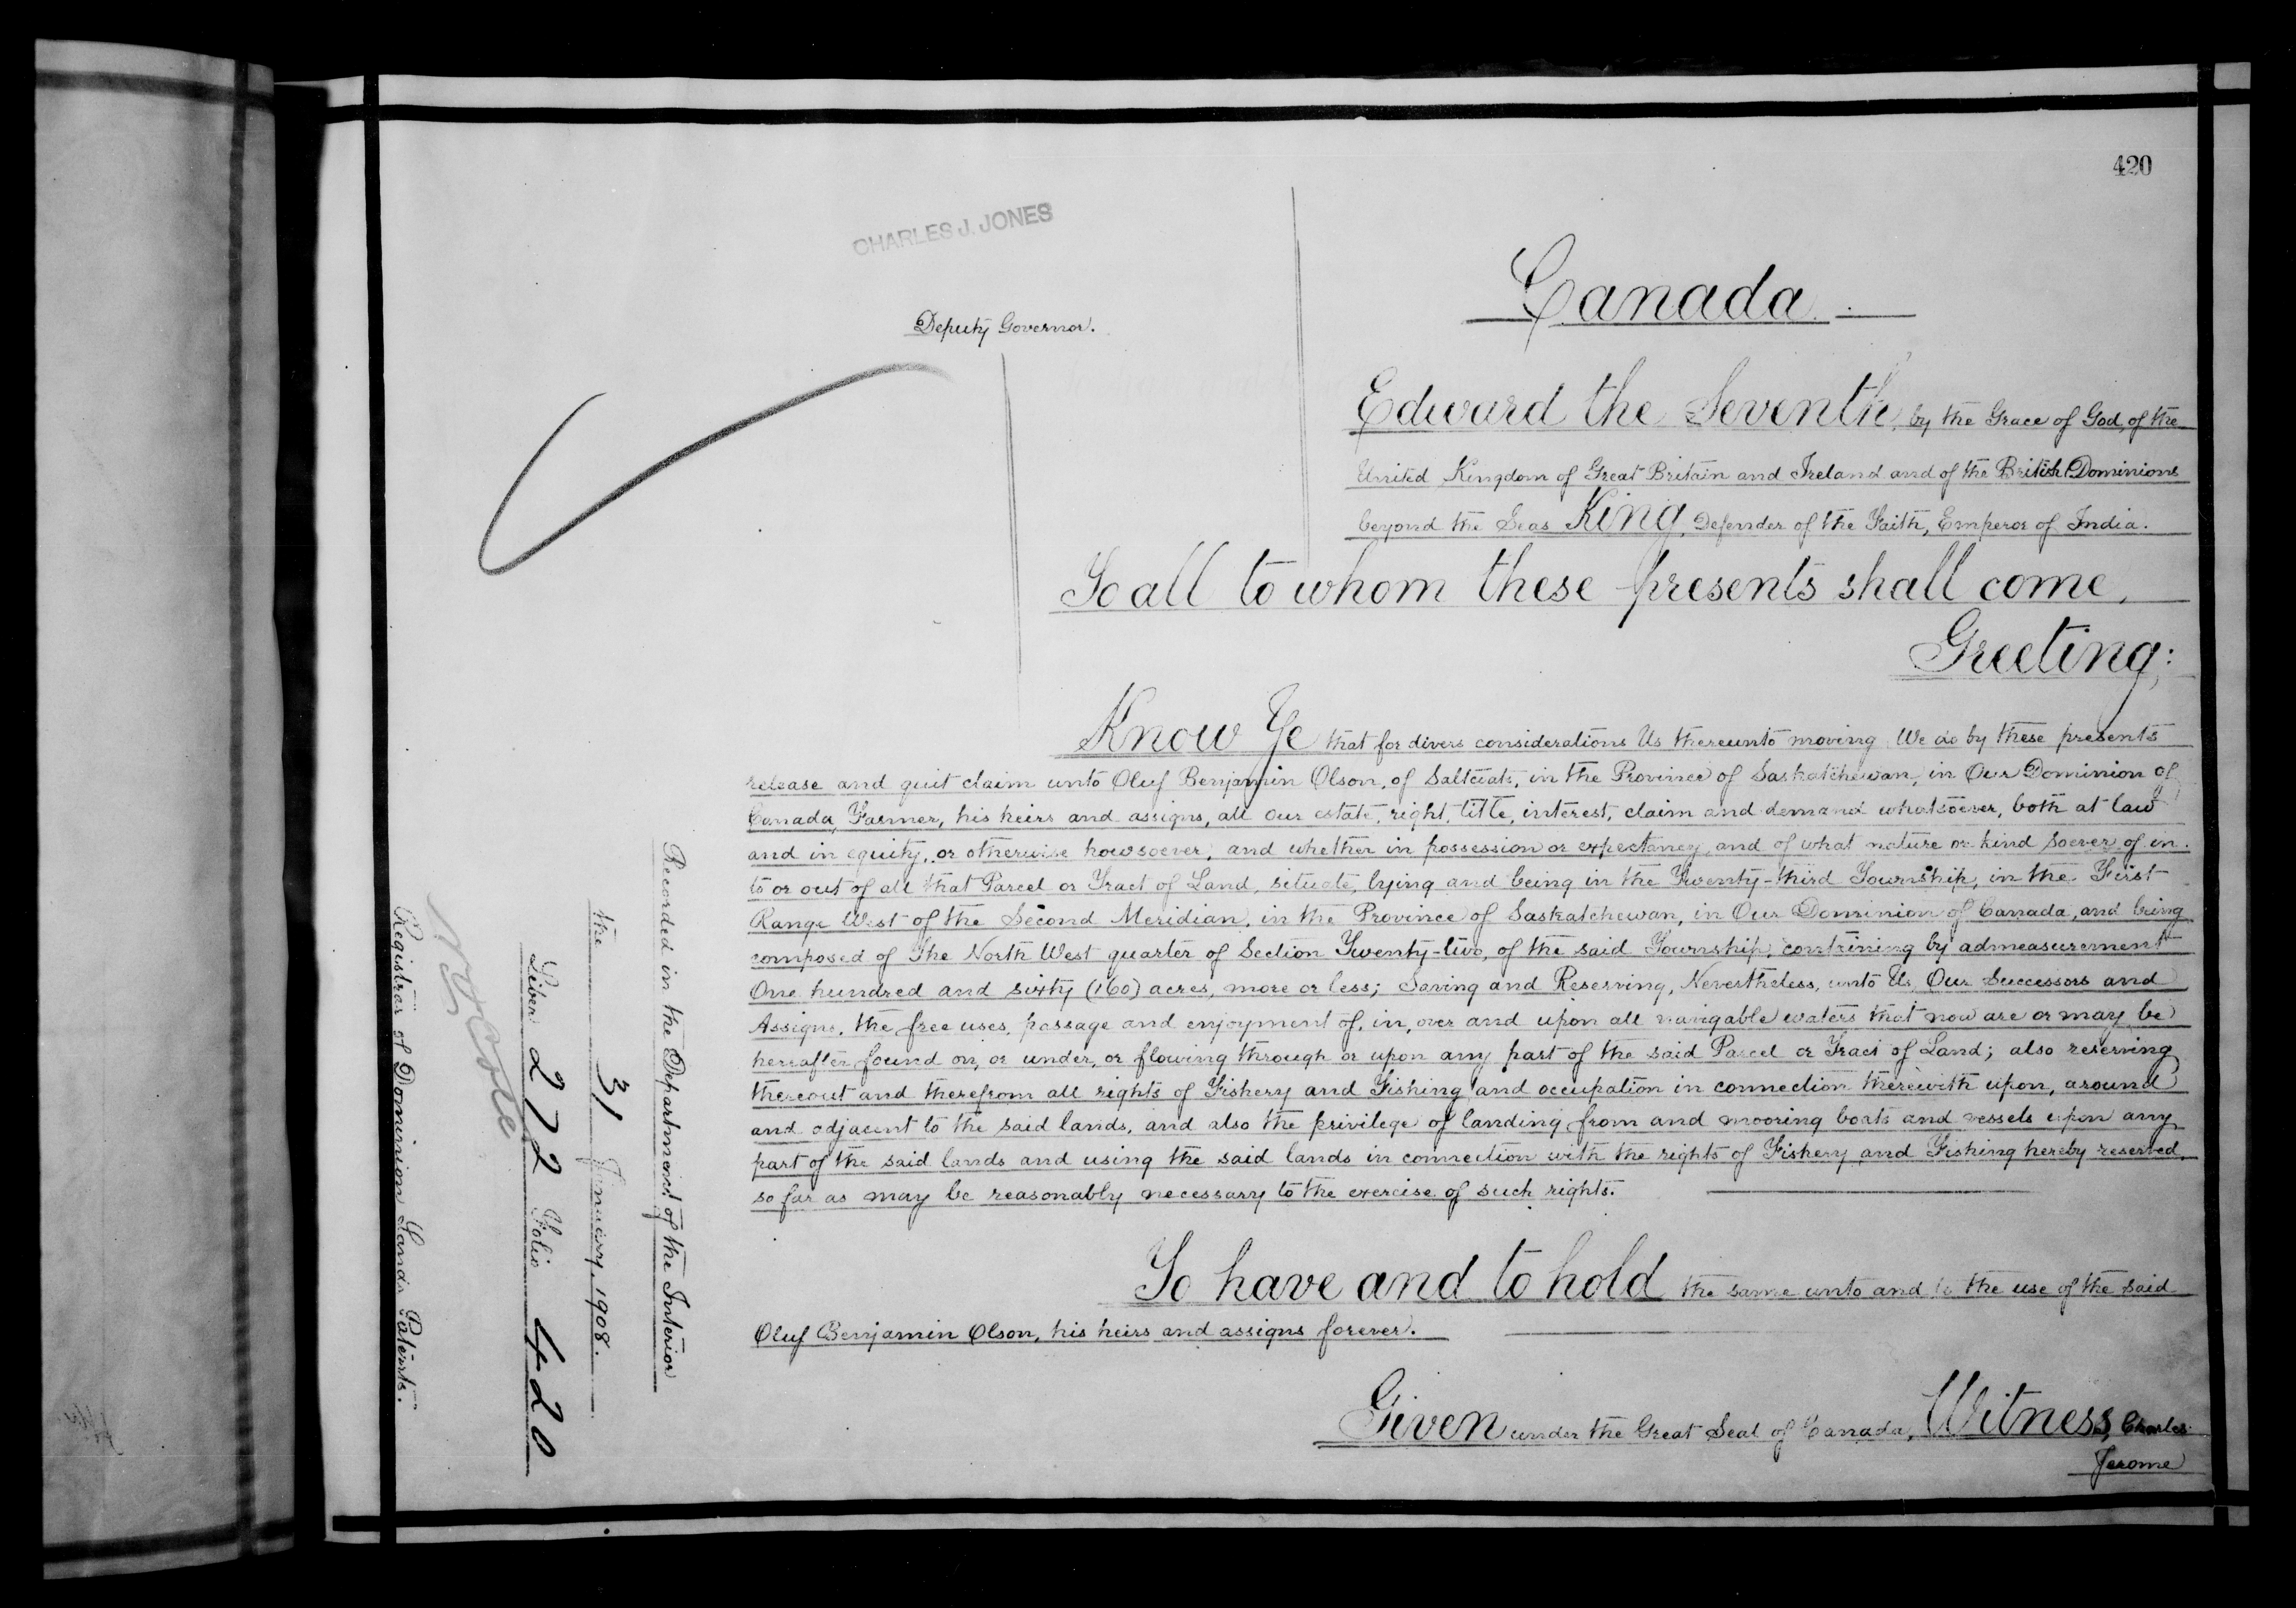 420
CHARLES J. JONES
Deputy Governor.
Canada
Edward the Seventh, by the Grace of God, of the
United Kingdom of Great Britain and Ireland and of the British Dominions
beyond the Seas King, Defender of the Faith, Emperor of India.
To all to whom these presents shall come,
Greeting;
Know Ye that for divers considerations Us thereunto moving We do by these presents
release and quit claim unto Oluf Benjamin Olson, of Saltcoats, in the Province of Saskatchewan, in Our Dominion of
Canada, Farmer, his heirs and assigns, all our estate, right, title, interest, claim and demand whatsoever, both at law
and in equity, or otherwise howsoever, and whether in possession or expectancy, and of what nature or kind soever of in
to or out of all that Parcel or Tract of Land, situate, lying and being in the Twenty-third Township, in the First
Range West of the Second Meridian, in the Province of Saskatchewan, in Our Dominion of Canada, and being
composed of The North West quarter of Section Twenty-two, of the said Township, containing by admeasurement
One hundred and sixty (160) acres, more or less; Saving and Reserving, Nevertheless, unto Us, Our Successors and
Assigns, the free uses, passage and enjoyment of, in, over and upon all navigable waters that now are or may be
hereafter found on, or under, or flowing through or upon any part of the said Parcel or Tract of Land; also reserving
thereout and therefrom all rights of Fishery and Fishing and occupation in connection therewith upon, around
and adjacent to the said lands, and also the privilege of landing from and mooring boats and vessels upon any
part of the said lands and using the said lands in connection with the rights of Fishery and Fishing hereby reserved,
so far as may be reasonably necessary to the exercise of such rights.
To have and to hold the same unto and to the use of the said
Oluf Benjamin Olson, his heirs and assigns forever.
Given under the Great Seal of Canada, Witness, Charles
Jerome
Recorded in the Department of the Interior
the 31 January, 1908.
Liber 272 Folio 420
Registrar of Dominion Lands Patents.